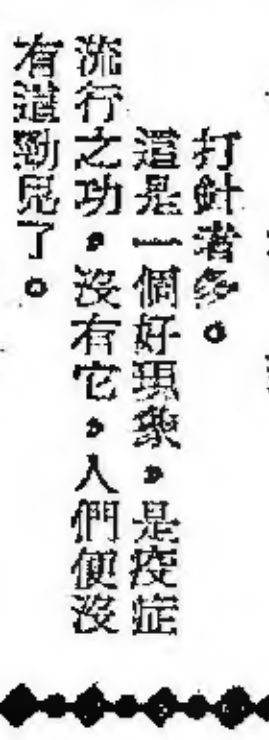 打針者多。
這是一個好現象，是疫症
流行之功，沒有它，人們便沒
有這勁兒了。